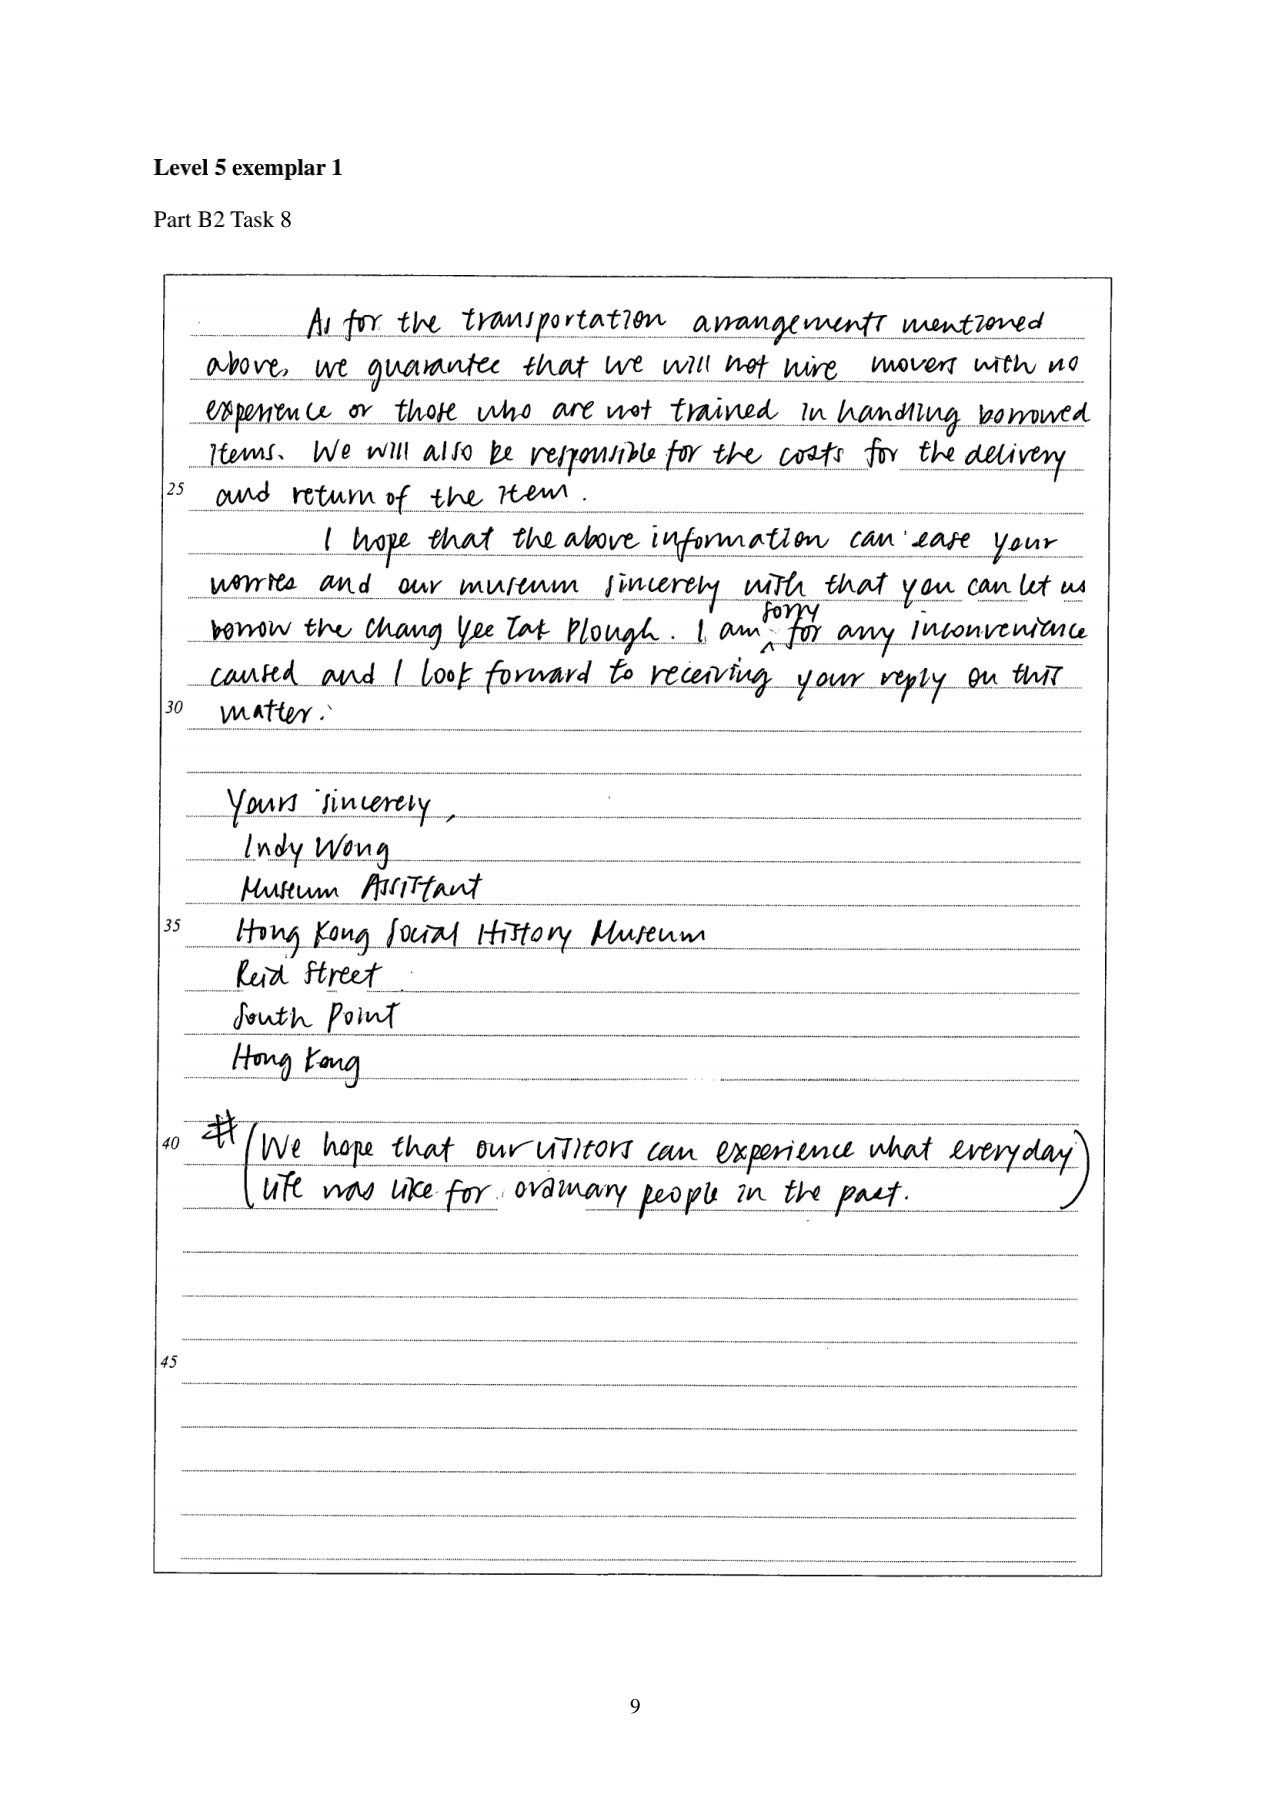 Level 5 exemplar 1
Part B2 Task 8
As for the transportation arrangements mentioned
above, we guarantee that we will not hire movers with no
experience or those who are not trained in handling borrowed
items. We will also be responsible for the costs for the delivery
25 and return of the item.
I hope that the above information can ease your
worries and our museum sincerely wish that you can let us
sorry
borrow the Chang Yee Tak Plough. I am ^ for any inconvenience
caused and I look forward to receiving your reply on this
30 matter.
Yours sincerely,
Indy Wong
Museum Assistant
35 Hong Kong Social History Museum
Reid Street
South Point
Hong Kong
40 # (We hope that our visitors can experience what everyday
life was like for ordinary people in the past.)
45
9